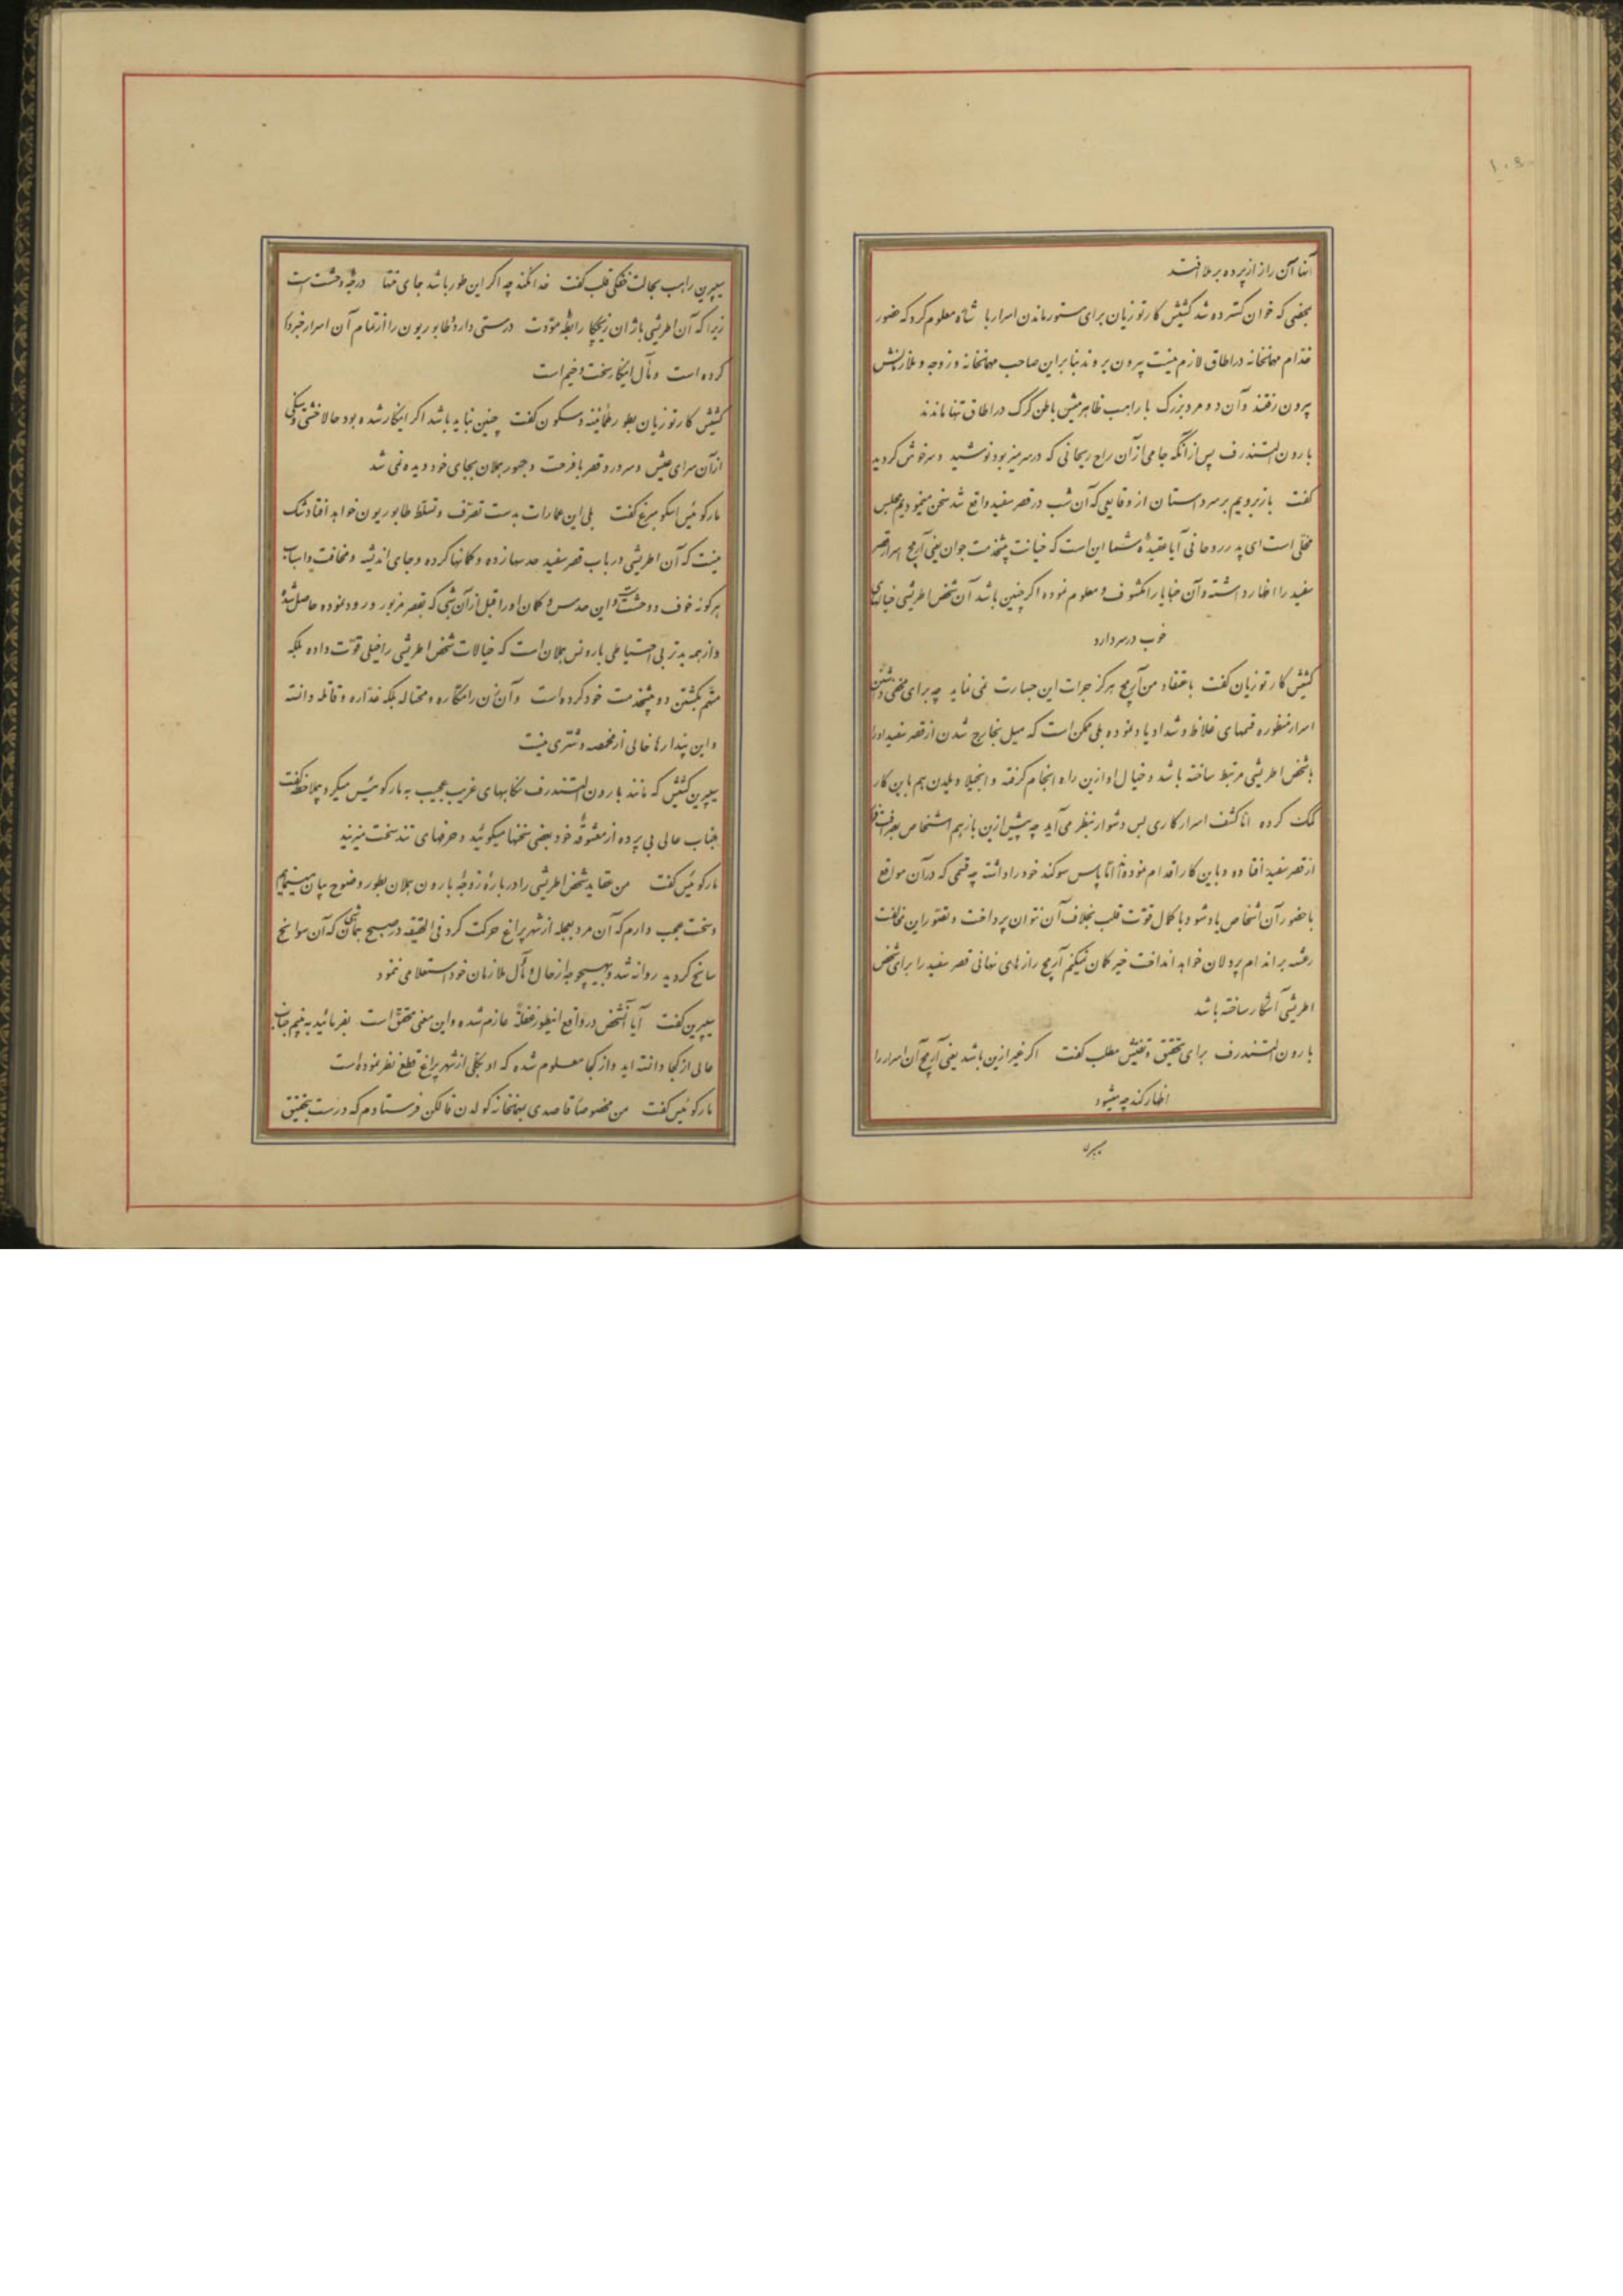 آنها آن راز از پرده برملا افتد
بمحض که خوان کسترده شد کشیش کارتوزیان برای مستور ماندن اسرار با شاه معلوم کرد که حضور
خدام مهمانخانه در اطاق لازم نیست بیرون بروند بنابراین صاحب مهمانخانه و زوجه و ملازمانش
بیرون رفتند و آن دو مرد بزرک با راهب ظاهر میش باطن کرک در اطاق تنها ماندند
بارون التندرف پس از آنکه جامی از آن راح ریحانی که در سر میز بود نوشید و سرخوش کردید
کفت باز برویم بر سر داستان از وقایعی که آن شب در قصر سفید واقع شد سخن میخواهیم مجلس
محلی است ای پدر روحانی آیا عقیدهٔ شما این است که خیانت پیشخدمت جوان یعنی آریح اسرار قصر
سفید را اظهار داشته و آن خبایا را مکشوف و معلوم نموده اکر چنین باشد آن شخص اطریشی خیالهای
خوب در سر دارد
کشیش کارتوزیان کفت باعتقاد من آریح هرکز جرات این جسارت نمی نماید چه برای مخفی داشتن
اسرار منظوره قسمهای غلاظ و شداد یاد نموده بلی ممکن است که میل بخارج شدن از قصر سفید او را
با شخص اطریشی مرتبط ساخته باشد و خیال او ازین راه انجام کرفته و انجیلا ویلدن هم باین کار
کمک کرده اما کشف اسرار کاری بس دشوار بنظر می آید چه پیش ازین باز هم اشخاص
از قصر سفید افتاده و باین کار اقدام نموده اند اما پاس سوکند خود را داشته چه قسمی که در آن مواقع
با حضور آن اشخاص یاد شود با کمال قوت قلب بخلاف آن نتوان پرداخت و تصور این مخالفت
رعشه بر اندام پردلان خواهد انداخت خیر کان نمیکنم آریح رازهای نهانی قصر سفید را برای شخص
اطریشی آشکار ساخته باشد
بارون التندرف برای تحقیق و تفتیش مطلب کفت اکر غیر ازین باشد یعنی آریح آن اسرار را
اظهار کند چه میشود
سیپرین راهب بحالت خفکی قلب کفت خدا نکند چه اکر این طور باشد جای منتها درجهٔ وحشت است
زیرا که آن اطریشی با ژان زیچکا رابطهٔ مودت درستی دارد و طابوریون را از تمام آن اسرار خبردار
کرده است و مآل اینکار سخت وخیم است
کشیش کارتوزیان بطور طمانینه و سکون کفت چنین نباید باشد اکر اینکار شده بود حالا خشتی و سنکی
از آن سرای عیش و سرور و قصر با فرحت و حبور هملان بجای خود دیده نمی شد
مارکوئیس اسکومبرغ کفت بلی این عمارات بدست تصرف و تسلط طابوریون خواهد افتاد شک
نیست که آن اطریشی در باب قصر سفید حدسها زده و کمانها کرده و جای اندیشه و مخافت و اسباب
هر کونه خوف و وحشت است و این حدس و کمان او را قبل از آن شبی که بقصر مزبور ورود نموده حاصل شده
و از همه بدتر بی احتیاطی بارونس هملان است که خیالات شخص اطریشی را خیلی قوت داده بلکه
متهم بکشتن دو پیشخدمت خود کرده است و آن زن را مکاره و محتاله بلکه غداره و قاتله دانسته
و این پندارها خالی از مخمصه و شری نیست
سیپرین کشیش که مانند بارون التندرف نکاههای غریب عجیب به مارکوئیس میکرد بملاحظه کفت
جناب عالی بی پرده از معشوقهٔ خود بعضی سخنها میکوئید و حرفهای تند سخت میزنید
مارکوئیس کفت من عقاید شخص اطریشی را دربارهٔ زوجهٔ بارون هملان بطور وضوح بیان مینمایم
و سخت عجب دارم که آن مرد بعجله از شهر پراغ حرکت کرد فی الحقیقه در صبح همان شبی که آن سوانح
سانح کردید روانه شد و بهیچوجه از حال و مآل ملازمان خود استعلامی ننمود
سیپرین کفت آیا آنشخص در واقع اینطور غفلةً عازم شده و این معنی محقق است بفرمائید ببینیم جناب
عالی از کجا دانسته اید و از کجا معلوم شده که او بکلی از شهر پراغ قطع نظر نموده است
مارکوئیس کفت من مخصوصاً قاصدی بمهمانخانه کولدن فالکن فرستادم که درست بتحقیق